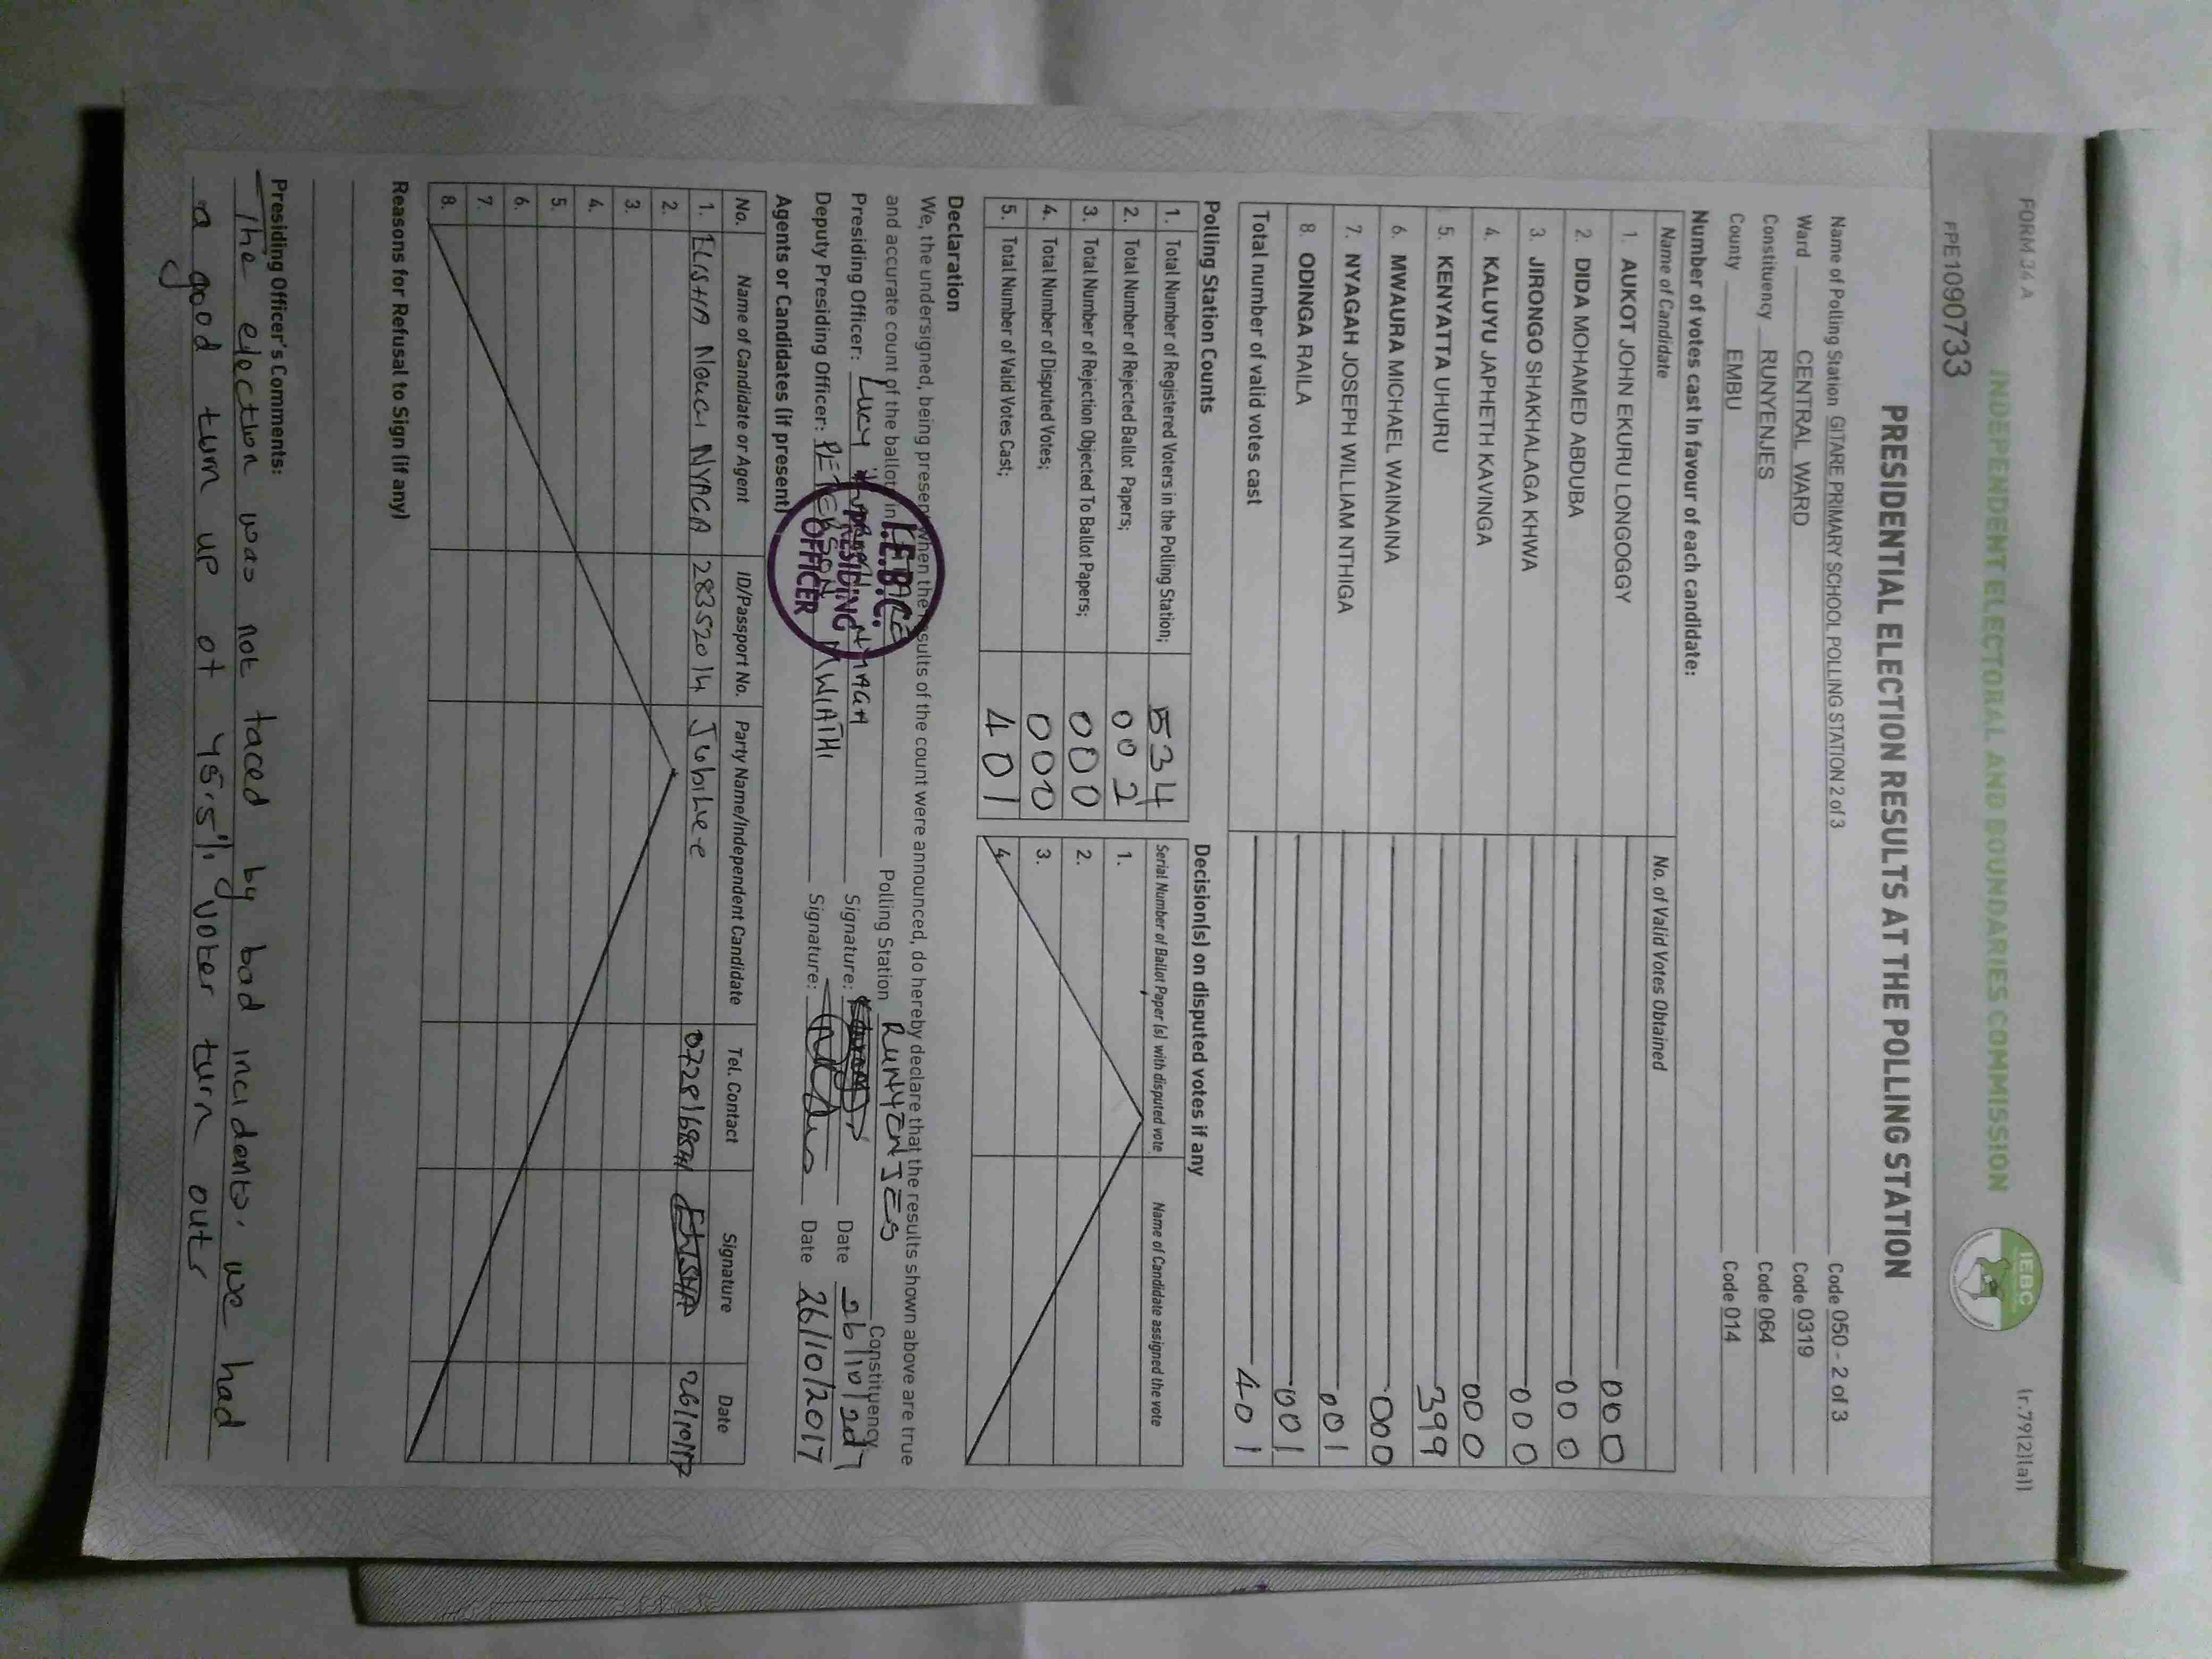 FORM 34 A
(r.79(2)(a))
INDEPENDENT ELECTORAL AND BOUNDARIES COMMISSION
IEBC
PPE1090733
PRESIDENTIAL ELECTION RESULTS AT THE POLLING STATION
Name of Polling Station GITARE PRIMARY SCHOOL POLLING STATION 2 of 3 Code 050 - 2 of 3
Ward CENTRAL WARD Code 0319
Constituency RUNYENJES Code 064
County EMBU Code 014
Number of votes cast in favour of each candidate:
Name of Candidate No. of Valid Votes Obtained
1. AUKOT JOHN EKURU LONGOGGY 000
2. DIDA MOHAMED ABDUBA 000
3. JIRONGO SHAKHALAGA KHWA 000
4. KALUYU JAPHETH KAVINGA 000
5. KENYATTA UHURU 399
6. MWAURA MICHAEL WAINAINA 000
7. NYAGAH JOSEPH WILLIAM NTHIGA 001
8. ODINGA RAILA 001
Total number of valid votes cast 401
Polling Station Counts
1. Total Number of Registered Voters in the Polling Station; 534
2. Total Number of Rejected Ballot Papers; 002
3. Total Number of Rejection Objected To Ballot Papers; 000
4. Total Number of Disputed Votes; 000
5. Total Number of Valid Votes Cast; 401
Decision(s) on disputed votes if any
Serial Number of Ballot Paper (s) with disputed vote Name of Candidate assigned the vote
1.
2.
3.
4.
Declaration
We, the undersigned, being present when the results of the count were announced, do hereby declare that the results shown above are true
and accurate count of the ballot in Polling Station RUNYENJES Constituency
Presiding Officer: Lucy Signature: Date 26/10/2017
Deputy Presiding Officer: PETERSON MWIATHI Signature: Date 26/10/2017
I.E.B.C.
PRESIDING
OFFICER
Agents or Candidates (if present)
No. Name of Candidate or Agent ID/Passport No. Party Name/Independent Candidate Tel. Contact Signature Date
1. ELISHA NYAGA 28352014 Jubilee ELISHA 26/10/17
2.
3.
4.
5.
6.
7.
8.
Reasons for Refusal to Sign (if any)
Presiding Officer's Comments:
The election was not faced by bad incidents. we had
a good turn up of voter turn outs